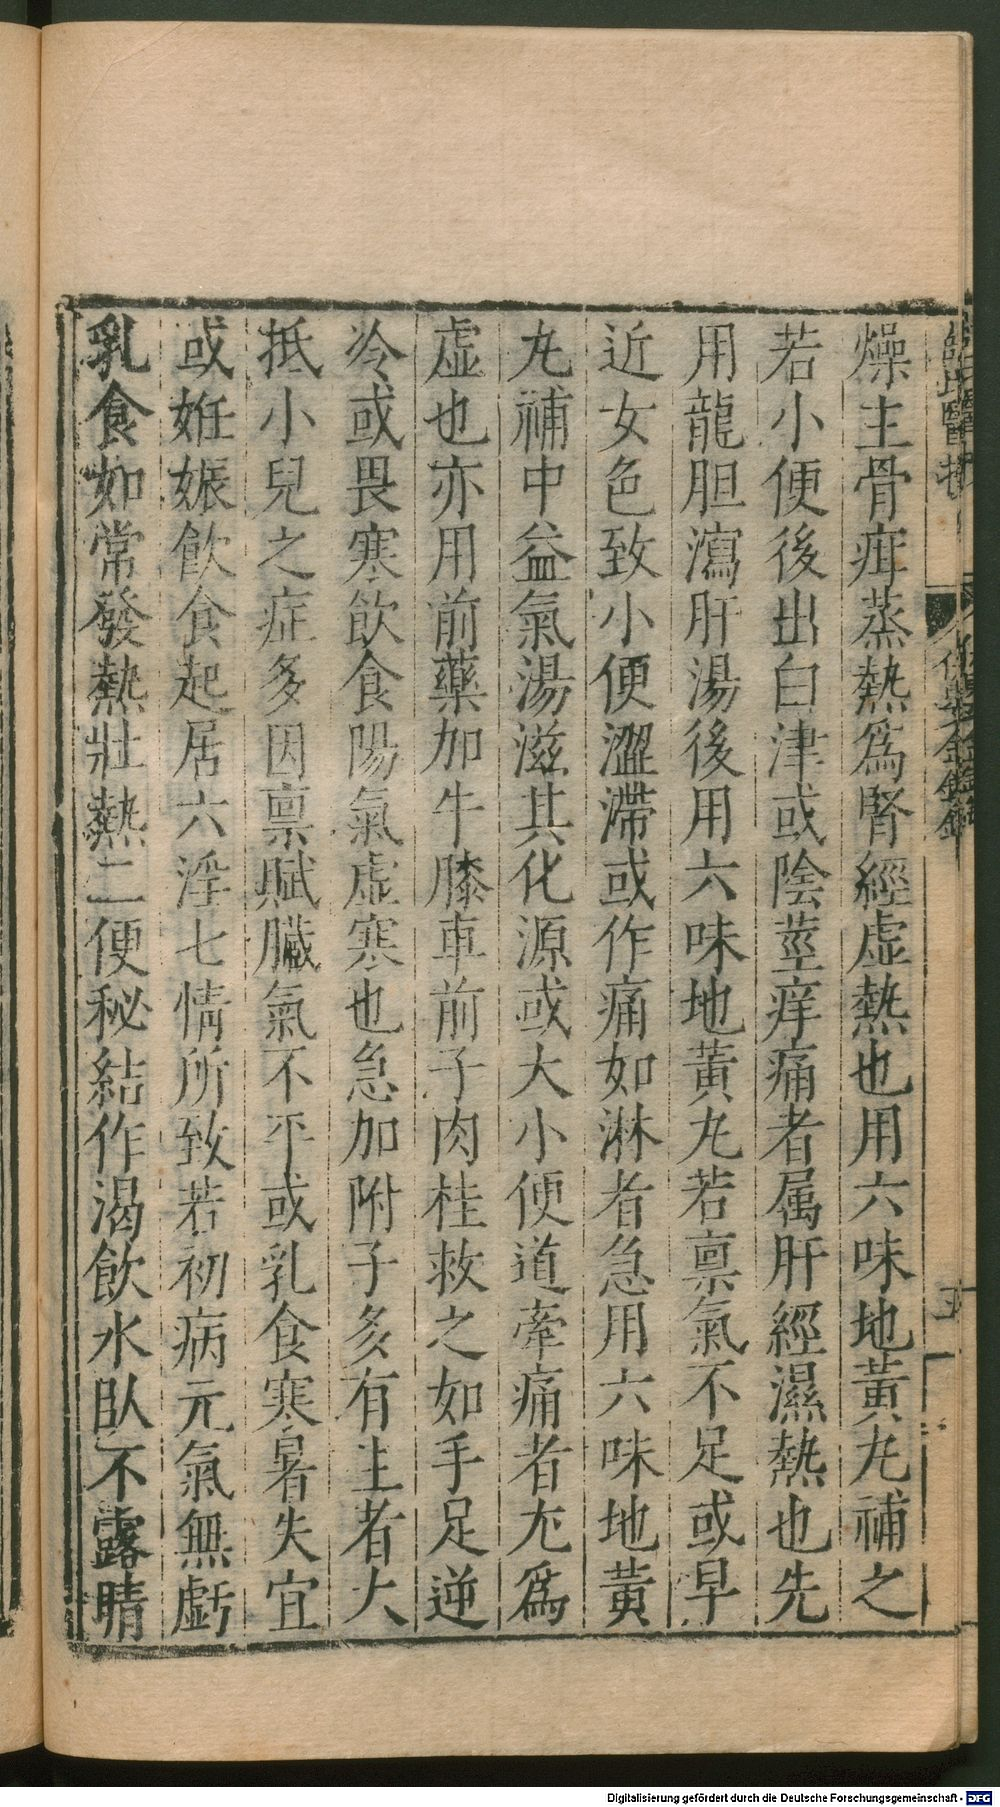 燥主骨疳蒸熱爲腎經虛熱也用六味地黄丸補之
若小便後出白津或陰莖痒痛者属肝經濕熱也先
用龍胆瀉肝湯後用六味地黄丸若禀氣不足或早
近女色致小便澀滯或作痛如淋者急用六味地黄
丸補中益氣湯滋其化源或大小便道牽痛者尢爲
虛也亦用前藥加牛膝車前子肉桂救之如手足逆
冷或畏寒飲食陽氣虛寒也急加附子多有生者大
抵小兒之症多因禀賦臟氣不平或乳食寒暑失宜
或妊娠飲食起居六淫七情所致若初病元氣無虧
乳食如常發熱壯熱二便秘結作渴飲水臥不露睛
Digitalisierung gefördert durch die Deutsche Forschungsgemeinschaft - DFG